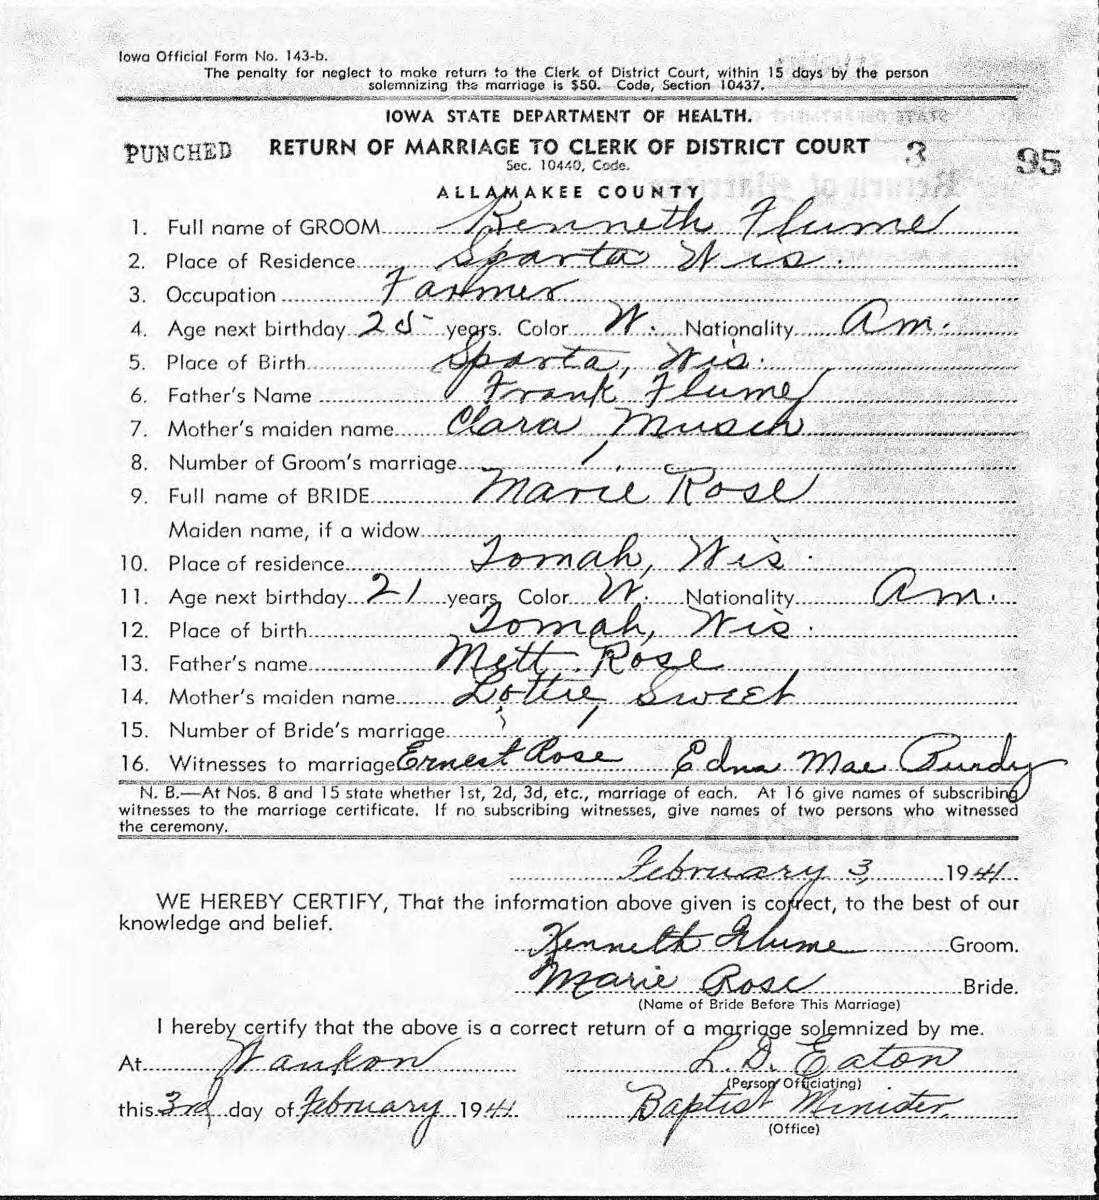 Iowa Official Form No. 143-b.
The penalty for neglect to make return to the Clerk of District Court, within 15 days by the person
solemnizing the marriage is $50. Code, Section 10437.
IOWA STATE DEPARTMENT OF HEALTH.
PUNCHED RETURN OF MARRIAGE TO CLERK OF DISTRICT COURT 3 95
Sec. 10440, Code.
ALLAMAKEE COUNTY
1. Full name of GROOM Kenneth Flume
2. Place of Residence Sparta Wis.
3. Occupation Farmer
4. Age next birthday 25 years. Color W. Nationality Am.
5. Place of Birth Sparta, Wis.
6. Father's Name Frank Flume
7. Mother's maiden name Clara Musch
8. Number of Groom's marriage 1
9. Full name of BRIDE Marie Rose
Maiden name, if a widow
10. Place of residence Tomah, Wis.
11. Age next birthday 21 years Color W. Nationality Am.
12. Place of birth Tomah, Wis.
13. Father's name Mett Rose
14. Mother's maiden name Lottie Sweet
15. Number of Bride's marriage 1
16. Witnesses to marriage Ernest Rose Edna Mae Purdy
N. B.—At Nos. 8 and 15 state whether 1st, 2d, 3d, etc., marriage of each. At 16 give names of subscribing
witnesses to the marriage certificate. If no subscribing witnesses, give names of two persons who witnessed
the ceremony.
February 3, 1941
WE HEREBY CERTIFY, That the information above given is correct, to the best of our
knowledge and belief.
Kenneth Flume Groom.
Marie Rose Bride.
(Name of Bride Before This Marriage)
I hereby certify that the above is a correct return of a marriage solemnized by me.
At Waukon L. D. Eaton
(Person Officiating)
this 3rd day of February 1941 Baptist Minister
(Office)